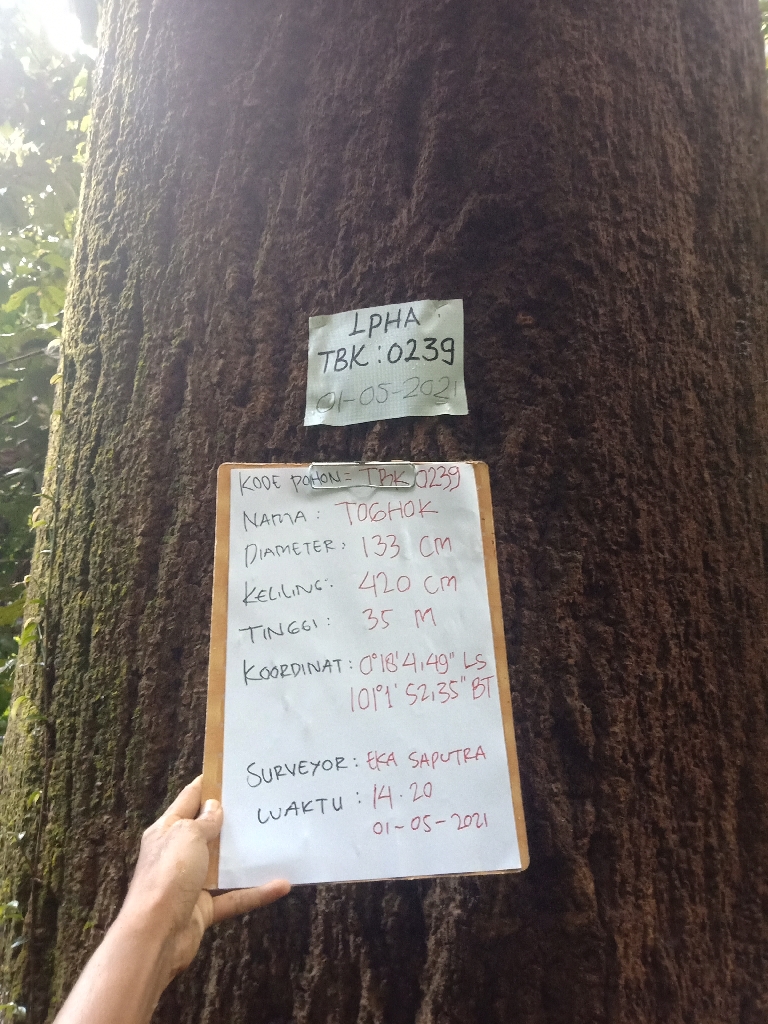 LPHA
TBK : 0239
01-05-2021
KODE POHON = TBK 0239
NAMA : TOGHOK
DIAMETER : 133 CM
KELILING : 420 CM
TINGGI : 35 M
KOORDINAT : 0°18'4,49" LS
101°1' 52,35" BT
SURVEYOR : EKA SAPUTRA
WAKTU : 14.20
01-05-2021